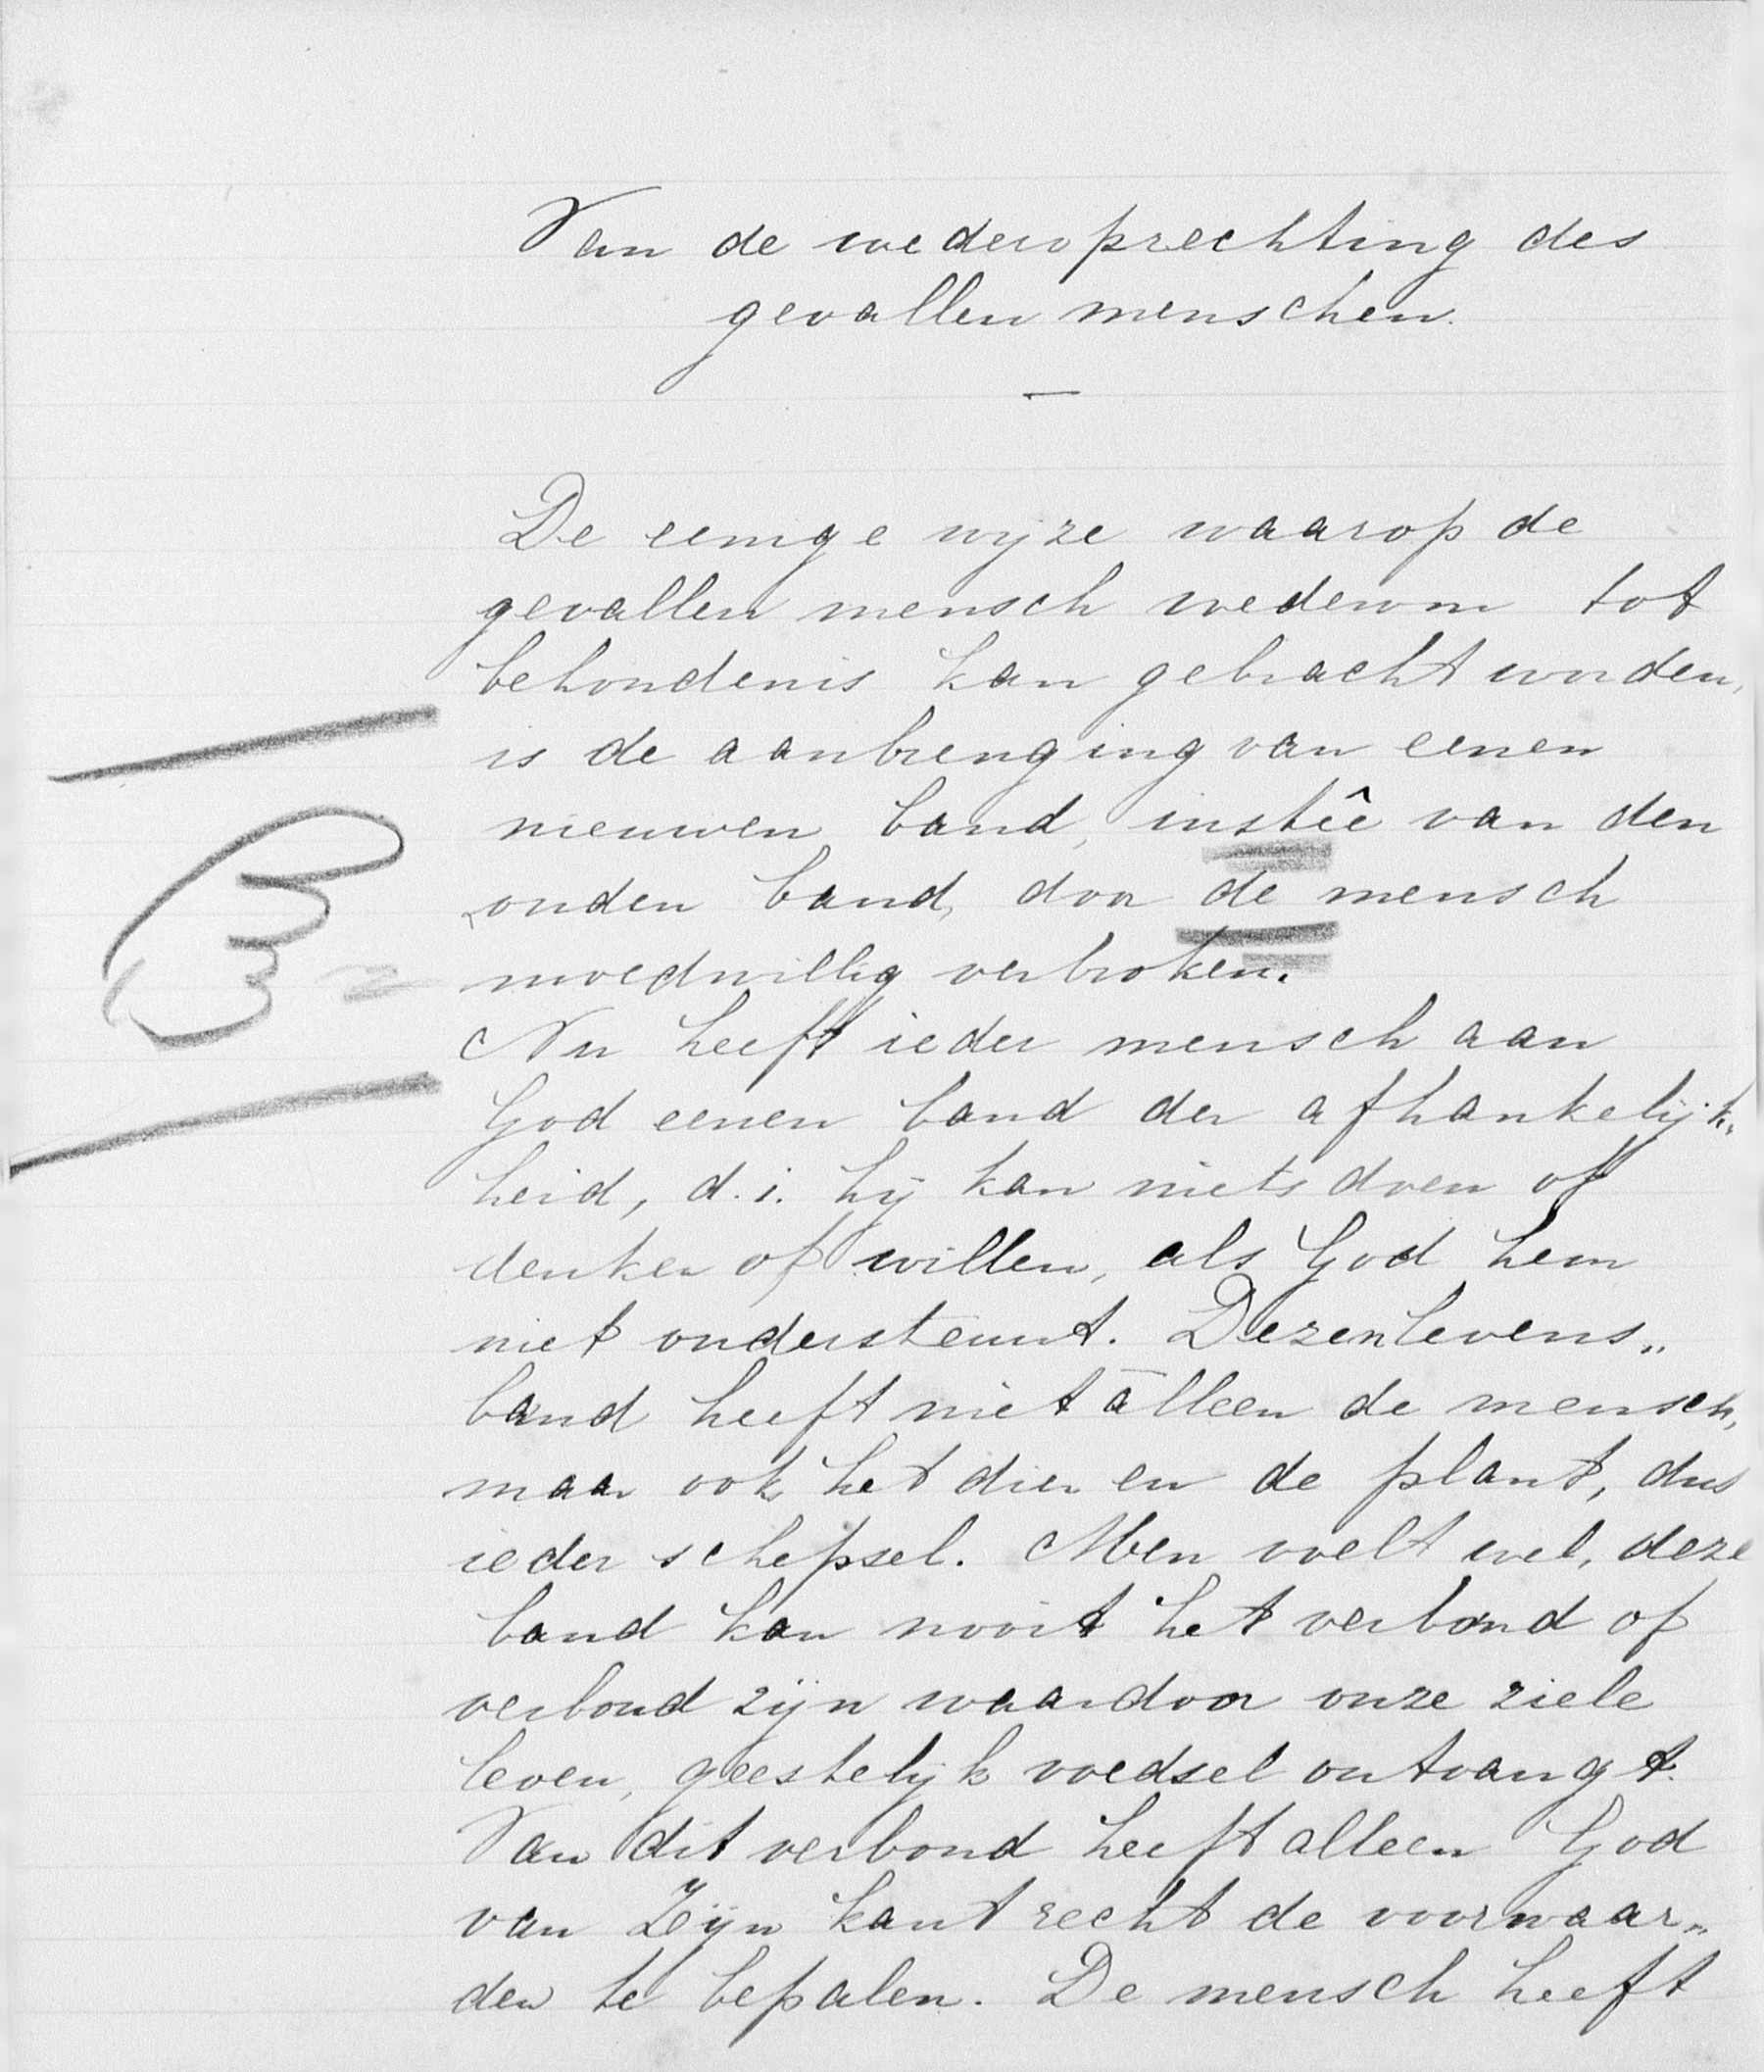 Van de wederoprechting des
gevallen menschen.
—
De eenige wijze waarop de
gevallen mensch wederom tot
behoudenis kan gebracht worden,
is de aanbrenging van eenen
nieuwen band, instêe van den
ouden band, door de mensch
moedwillig verbroken.
Nu heeft ieder mensch aan
God eenen band der afhankelijk„
heid, d.i. hij kan niets doen of
denken of willen, als God hem
niet ondersteunt. Dezen levens„
band heeft niet alleen de mensch,
maar ook het dier en de plant, dus
ieder schepsel. Men voelt wel, deze
band kan nooit het verband of
verbond zijn waardoor onze ziele
leven, geestelijk voedsel ontvangt.
Van dit verbond heeft alleen God
van Zijn kant recht de voorwaar„
den te bepalen. De mensch heeft